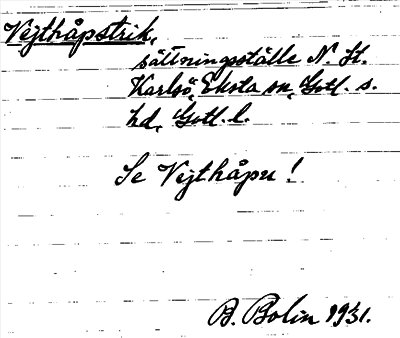 Vejthåpstrik,
sättningsställe N. St.
Karlsö, Eksta sn, Gotl. s.
hd, Gotl. l.
Se Vejthåpu!
B. Bolin 1931.